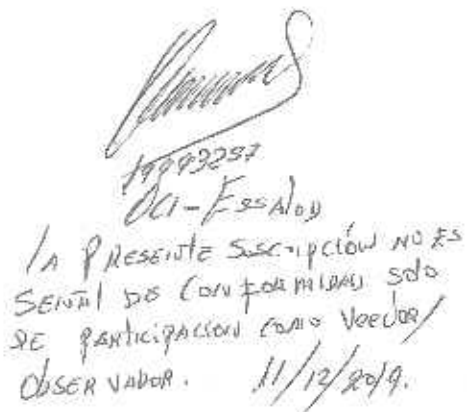 19993297
OCI - ESSALUD
LA PRESENTE SUSCRIPCIÓN NO ES
SEÑAL DE CONFORMIDAD SOLO
DE PARTICIPACION COMO VEEDOR/
OBSERVADOR. 11/12/2019.